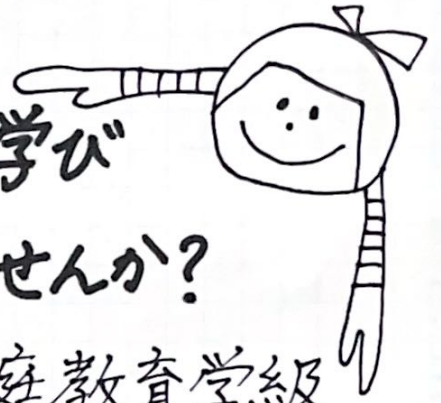 学び
せんか?
庭教育学級